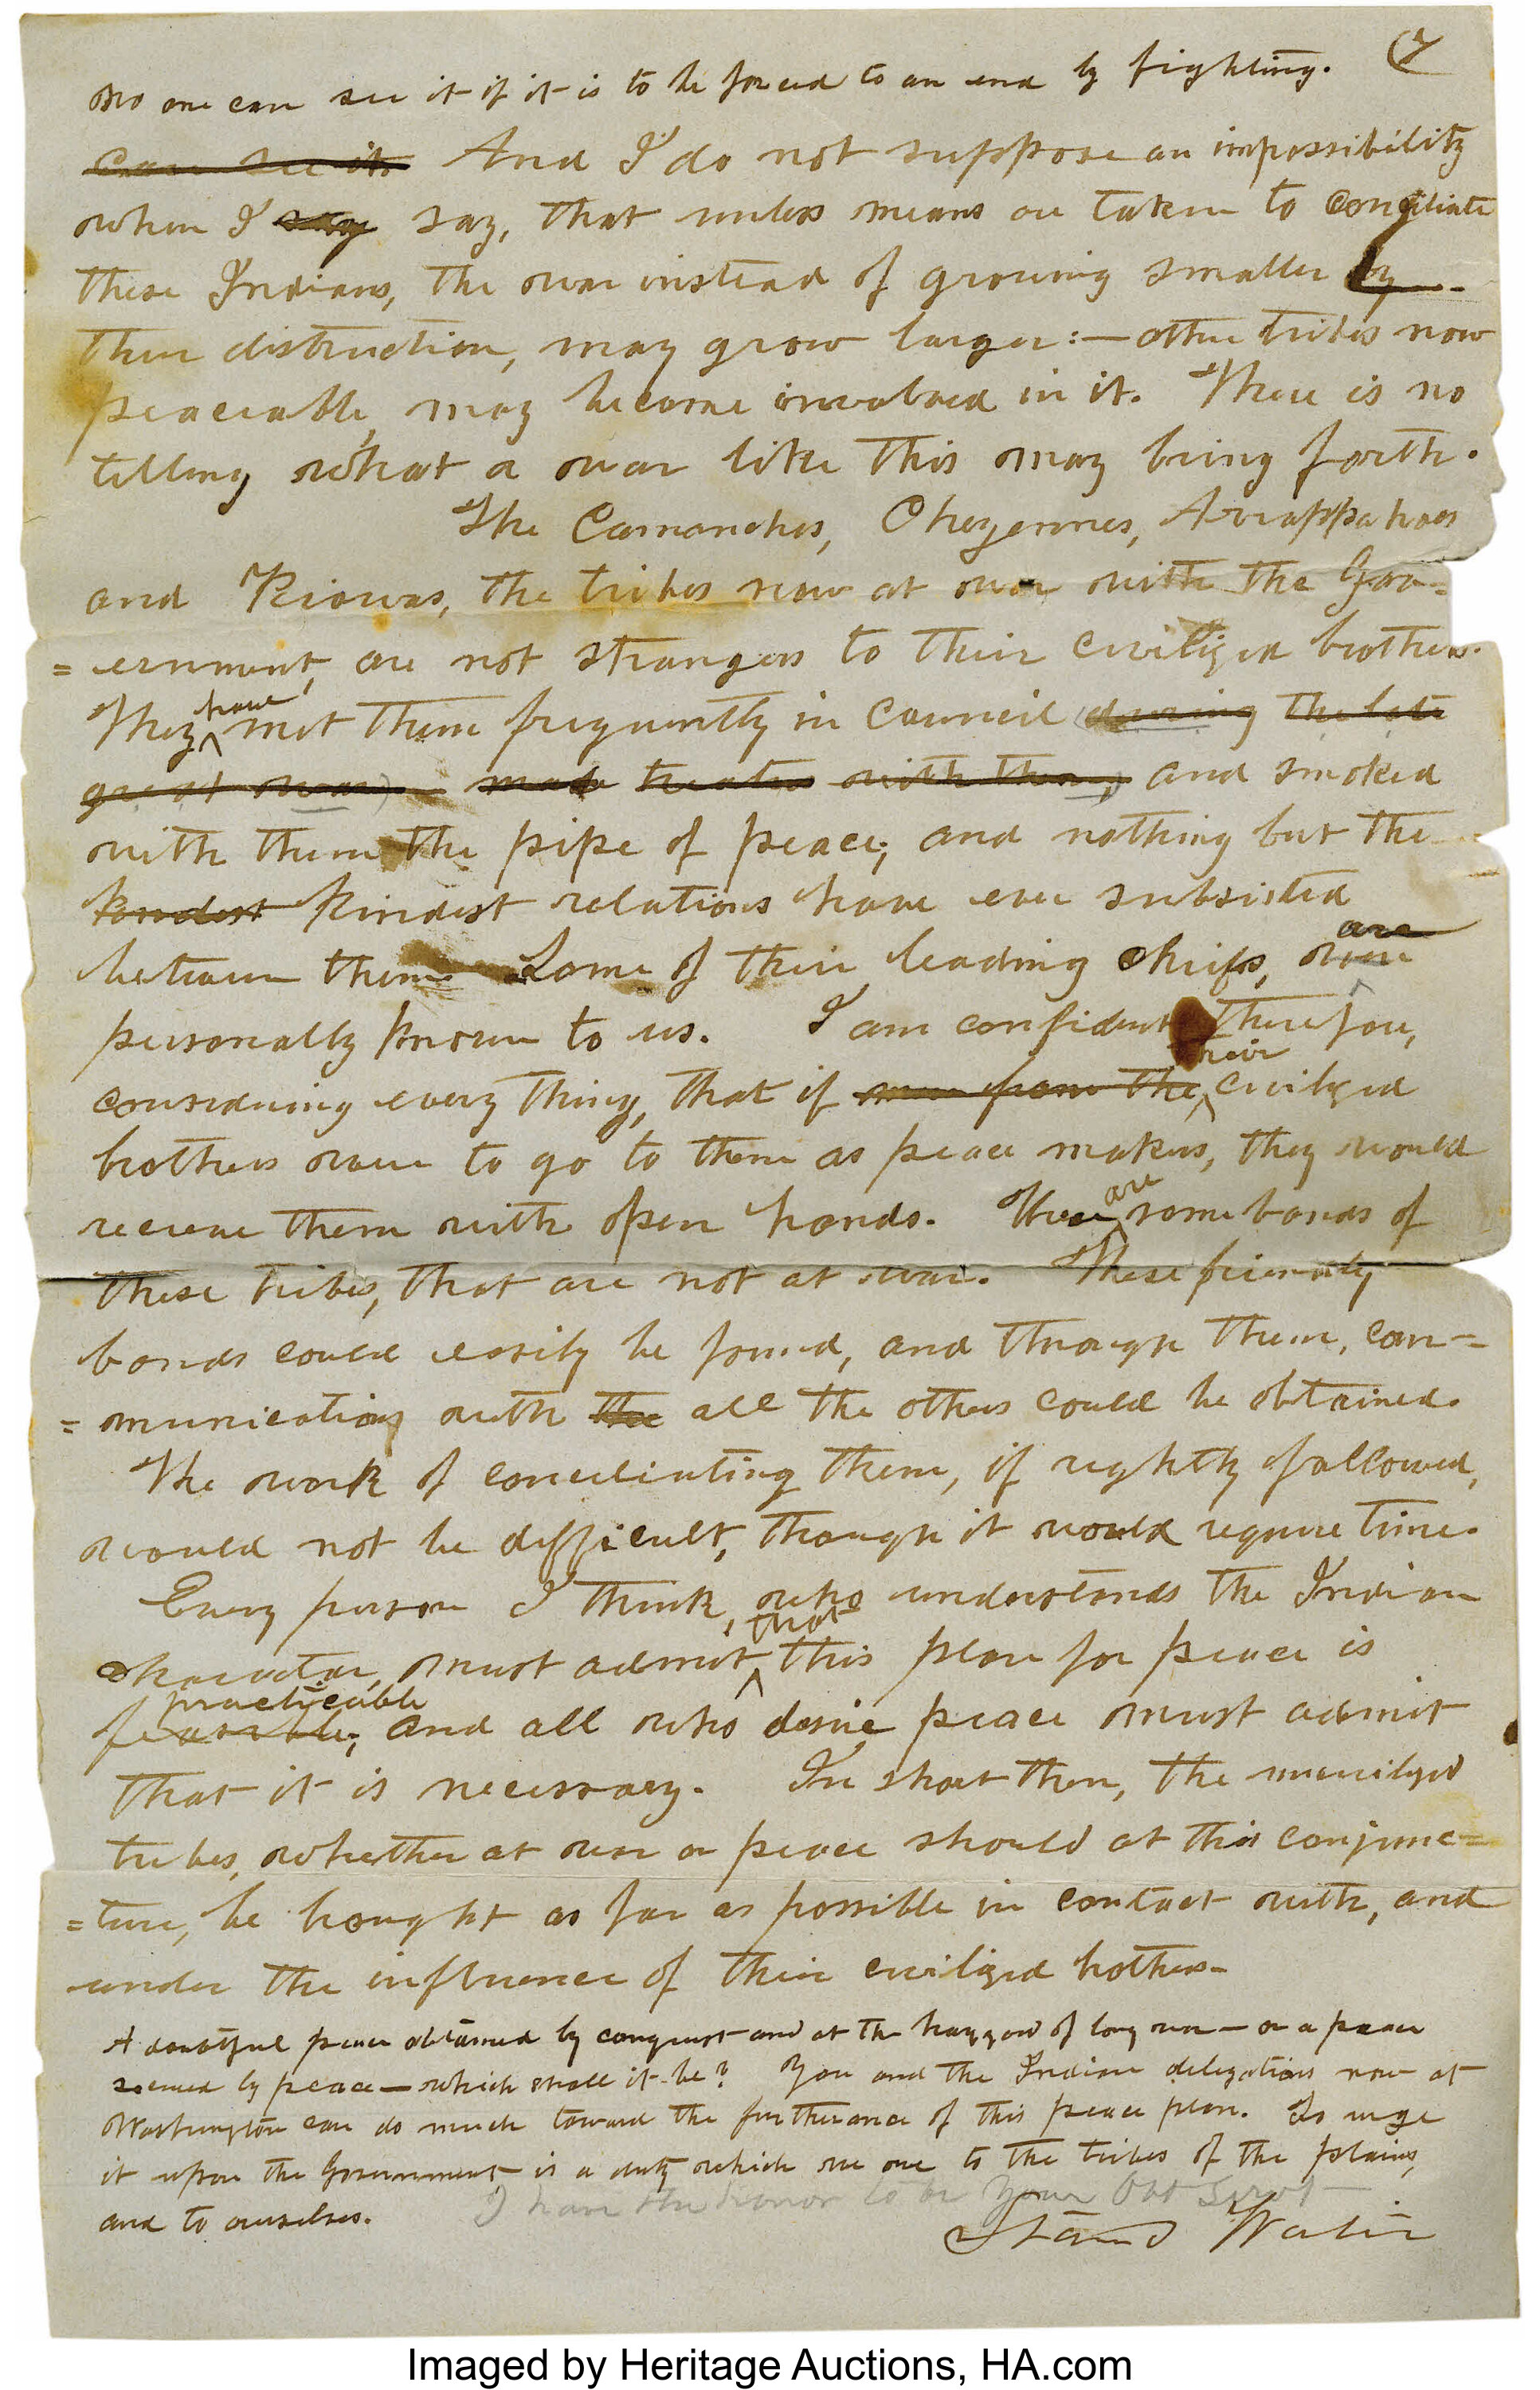 (7
no one can see it if it is to be forced to an end by fighting.
can see it. And I do not suppose an impossibility
when I say say, that unless means are taken to conciliate
these Indians, the war instead of growing smaller by
their distruction, may grow larger:— other tribes now
peaceable, may become involved in it. There is no
telling what a war like this may bring forth.
The Camanches, Cheyennes, Arrappahoes
and Kiowas, the tribes now at war with the Gov=
=ernment, are not strangers to their civilized brothers.
They have met them frequently in Council (during the late
great war) made treaties with them, and smoked
with them the pipe of peace; and nothing but the
kindest kindest relations have ever subsisted
between them. Some of their leading chiefs, were are
personally known to us. I am confident therefore,
considering every thing, that if men from the their civilized
brothers were to go to them as peace makers, they would
receive them with open hands. There are some bands of
these tribes, that are not at war. These friendly
bands could easily be found, and through them, com=
=munication with the all the others could be obtained.
The work of conciliating them, if rightly followed,
would not be difficult, though it would require time.
Every person I think, who understands the Indian
character, must admit that this plan for peace is
feasible; practicable and all who desire peace must admit
that it is necessary. In short then, the uncivilized
tribes, whether at war or peace should at this conjunc=
=ture, be bought as far as possible in contact with, and
under the influence of their civilized brothers—
A doubtful peace obtained by conquest and at the hazzard of long war — or a peace
secured by peace — which shall it be? You and the Indian delegations now at
Washington can do much toward the furtherance of this peace plan. To urge
it upon the Government is a duty which we owe to the tribes of the plains,
and to ourselves.
I have the honor to be Your Obt Servt
Stand Watie
Imaged by Heritage Auctions, HA.com